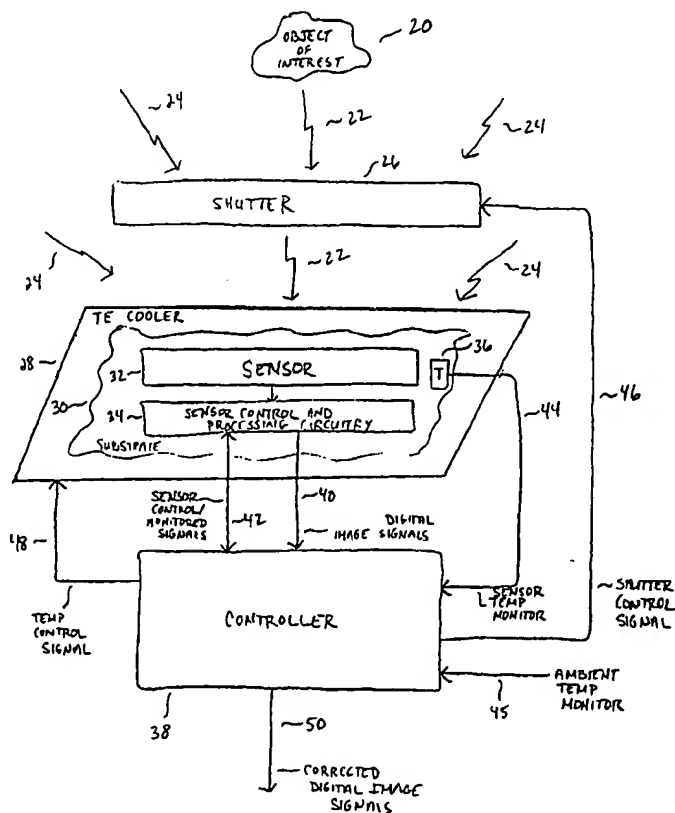 OBJECT
OF
INTEREST
20
24
22
24
26
SHUTTER
24
22
24
TE COOLER
28
36
32
SENSOR
T
30
34
SENSOR CONTROL AND
PROCESSING CIRCUITRY
SUBSTRATE
44
46
48
SENSOR
CONTROL/
MONITORED
SIGNALS
42
40
DIGITAL
IMAGE SIGNALS
TEMP
CONTROL
SIGNAL
CONTROLLER
SENSOR
TEMP
MONITOR
SHUTTER
CONTROL
SIGNAL
38
50
45
AMBIENT
TEMP
MONITOR
CORRECTED
DIGITAL IMAGE
SIGNALS